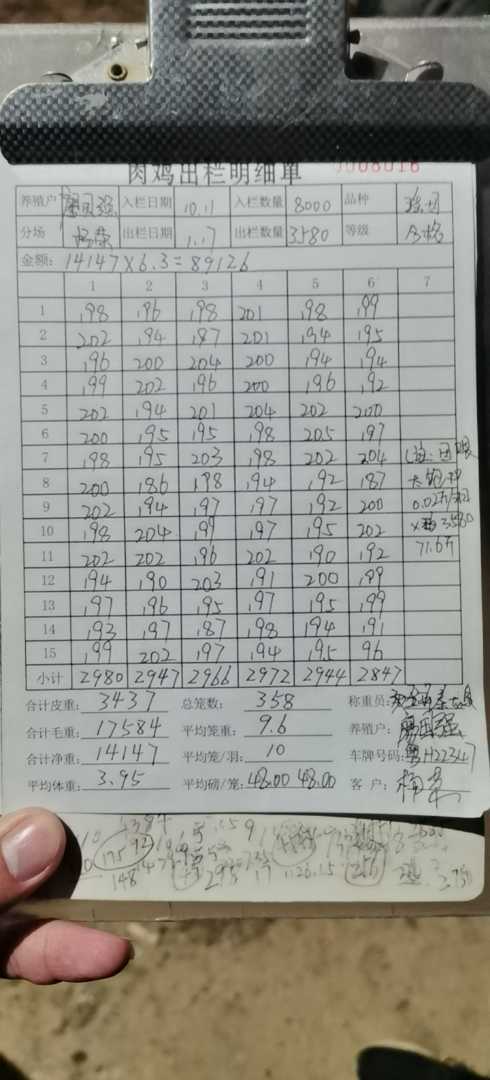 肉鸡出栏明细单
0008018
养殖户 入栏日期 10.11 入栏数量 8000 品种
分场 杨荣 出栏日期 1.17 出栏数量 3580 等级 合格
金额: 14147×6.3=89126
1 2 3 4 5 6 7
1 198 196 198 201 198 199
2 202 194 187 201 194 195
3 196 200 204 200 194 194
4 199 202 196 200 196 192
5 202 194 201 204 202 200
6 200 195 195 198 205 197
7 198 195 203 198 202 204
8 200 186 198 194 192 187
9 202 194 197 197 192 200
10 198 204 199 197 195 202
11 202 202 196 202 190 192
12 194 190 203 191 200 199
13 197 196 195 197 195 199
14 193 197 187 198 194 191
15 199 202 197 194 195 96
0.02
3580
71.6
小计 2980 2947 2966 2972 2944 2847
合计皮重: 3437 总笼数: 358 称重员:
合计毛重: 17584 平均笼重: 9.6 养殖户:
合计净重: 14147 平均笼/羽: 10 车牌号码: 粤H22347
平均体重: 3.95 平均磅/笼: 48.00 48.00 客 户: 杨荣